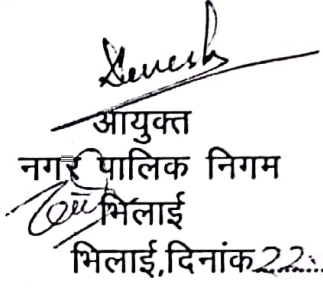 आयुक्त
नगर पालिक निगम
भिलाई
भिलाई,दिनांक 22......